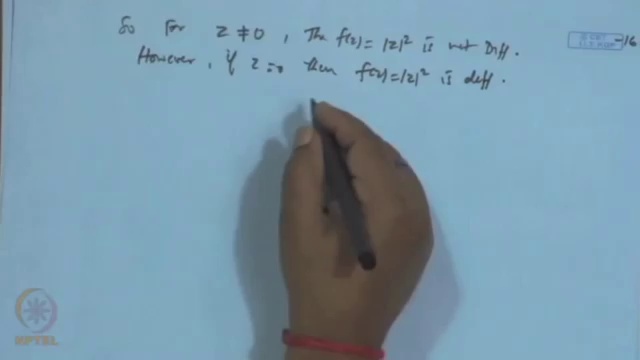 So For z ≠ 0, The f(z) = |z|² is not Diff.
However, if z = 0 then f(z) = |z|² is diff.
-16
NPTEL